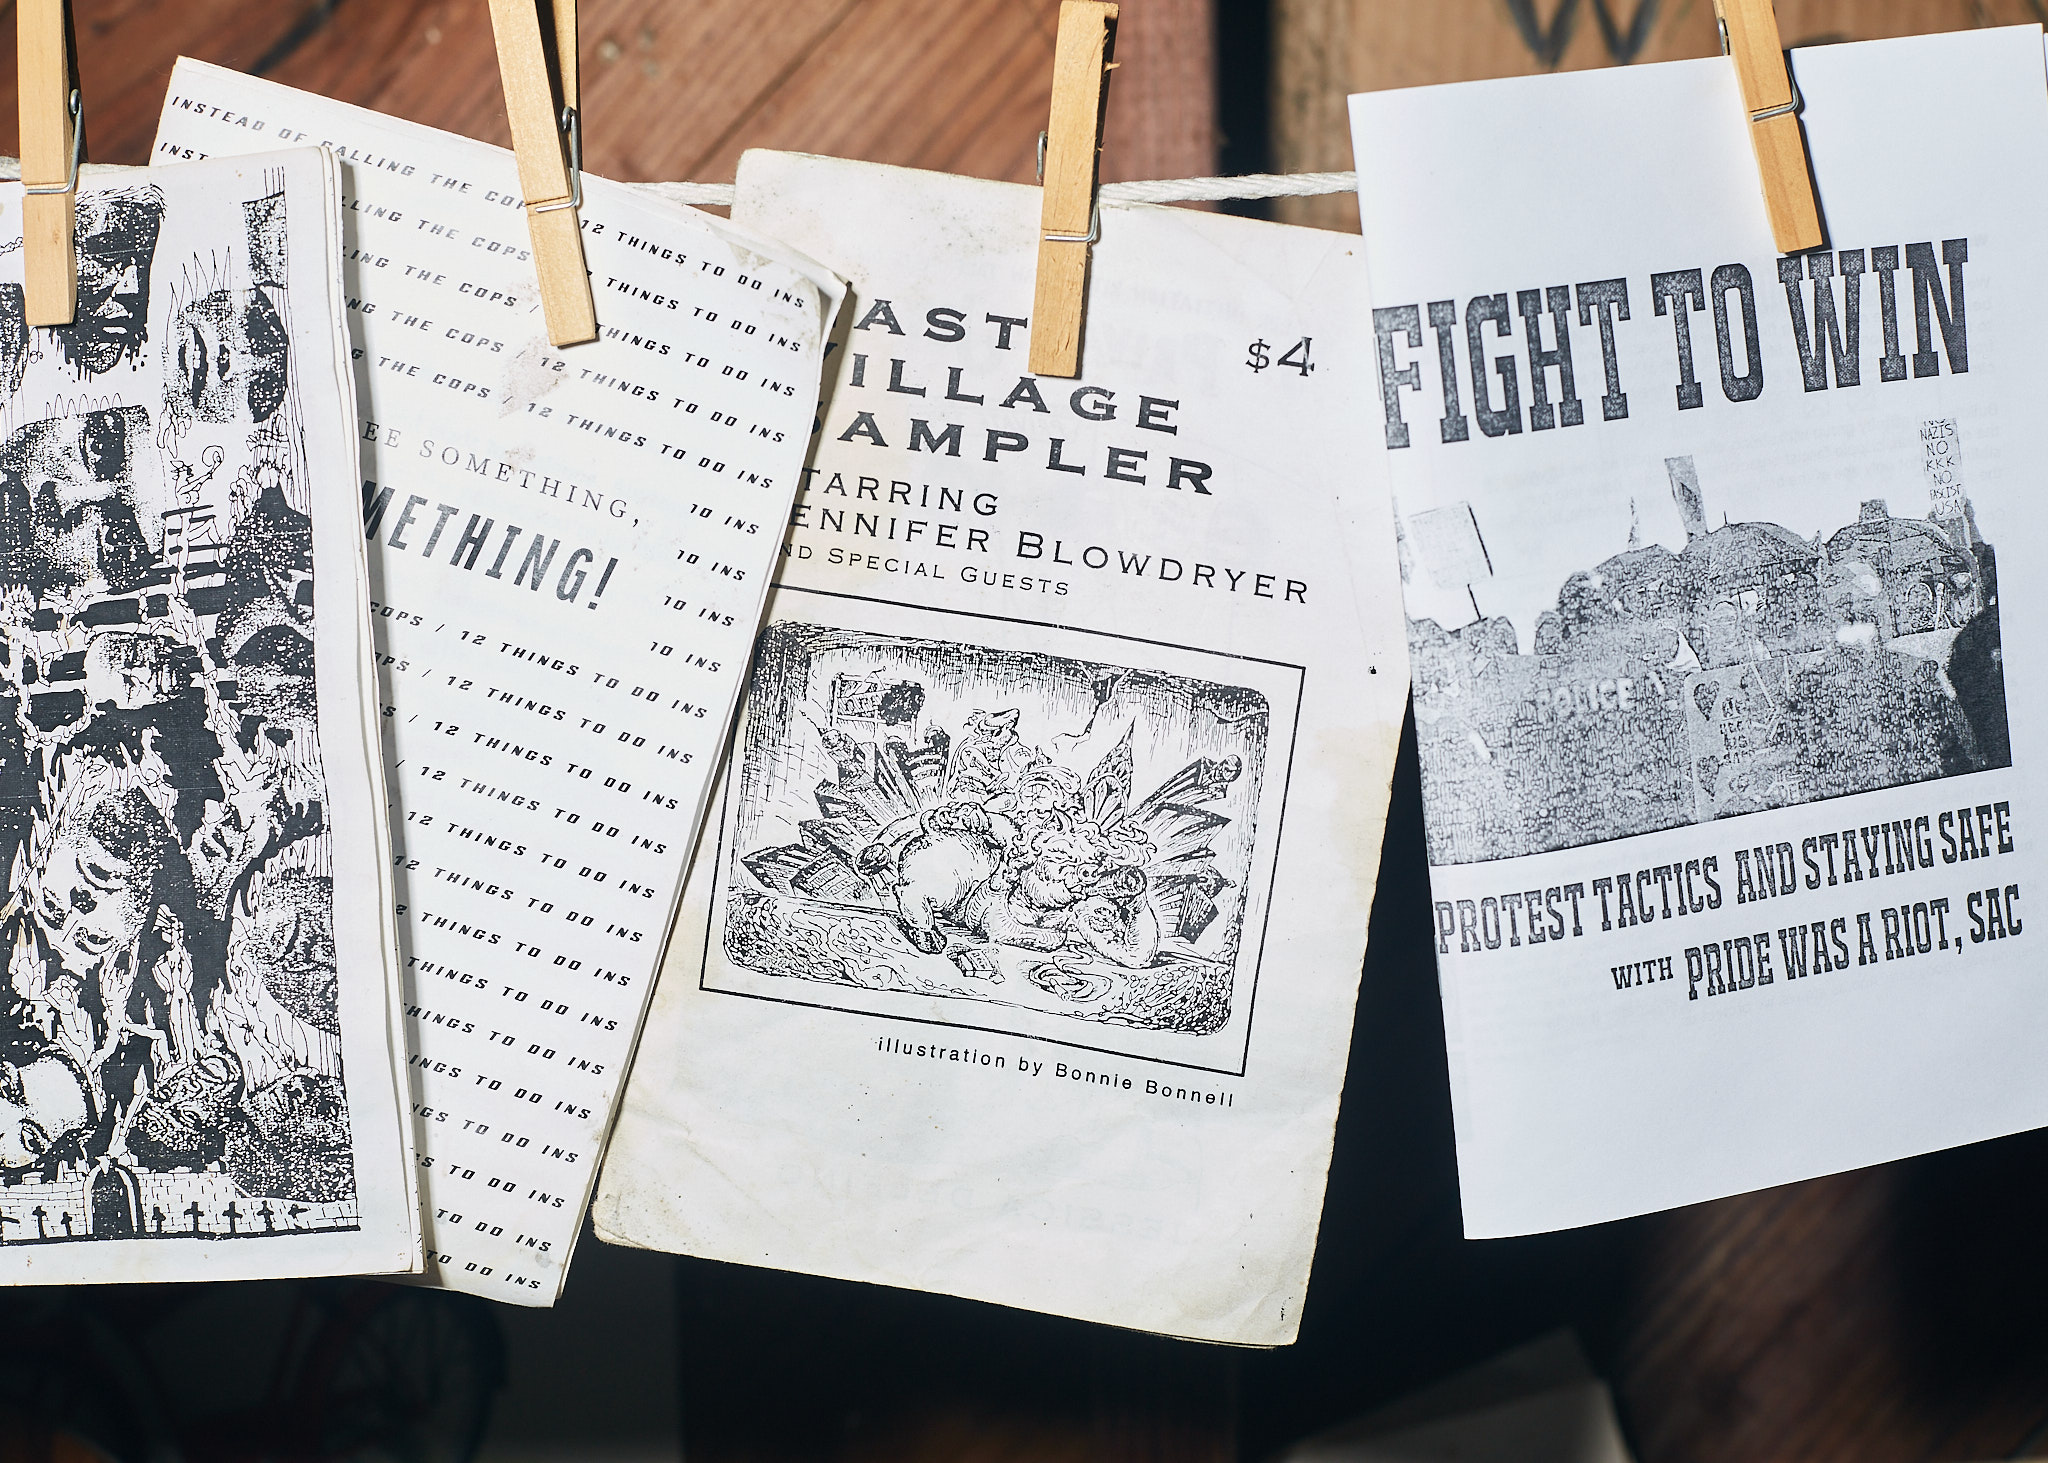 INSTEAD OF CALLING THE COPS
12 THINGS TO DO INS
INST LLING THE COPS
THINGS TO DO INS
LING THE COPS /
THINGS TO DO INS
NG THE COPS / 12 THINGS TO DO INS
G THE COPS / 12 THINGS TO DO INS
EE SOMETHING,
METHING!
TO INS
TO INS
TO INS
TO INS
COPS / 12 THINGS TO DO INS
OPS / 12 THINGS TO DO INS
S / 12 THINGS TO DO INS
/ 12 THINGS TO DO INS
12 THINGS TO DO INS
12 THINGS TO DO INS
2 THINGS TO DO INS
THINGS TO DO INS
HINGS TO DO INS
INGS TO DO INS
GS TO DO INS
S TO DO INS
TO DO INS
TO DO INS
AST
VILLAGE
SAMPLER
$4
TARRING
ENNIFER BLOWDRYER
ND SPECIAL GUESTS
illustration by Bonnie Bonnell
W
FIGHT TO WIN
NAZIS
NO
KKK
NO
FASCIST
USA
POLICE
PROTEST TACTICS AND STAYING SAFE
WITH PRIDE WAS A RIOT, SAC